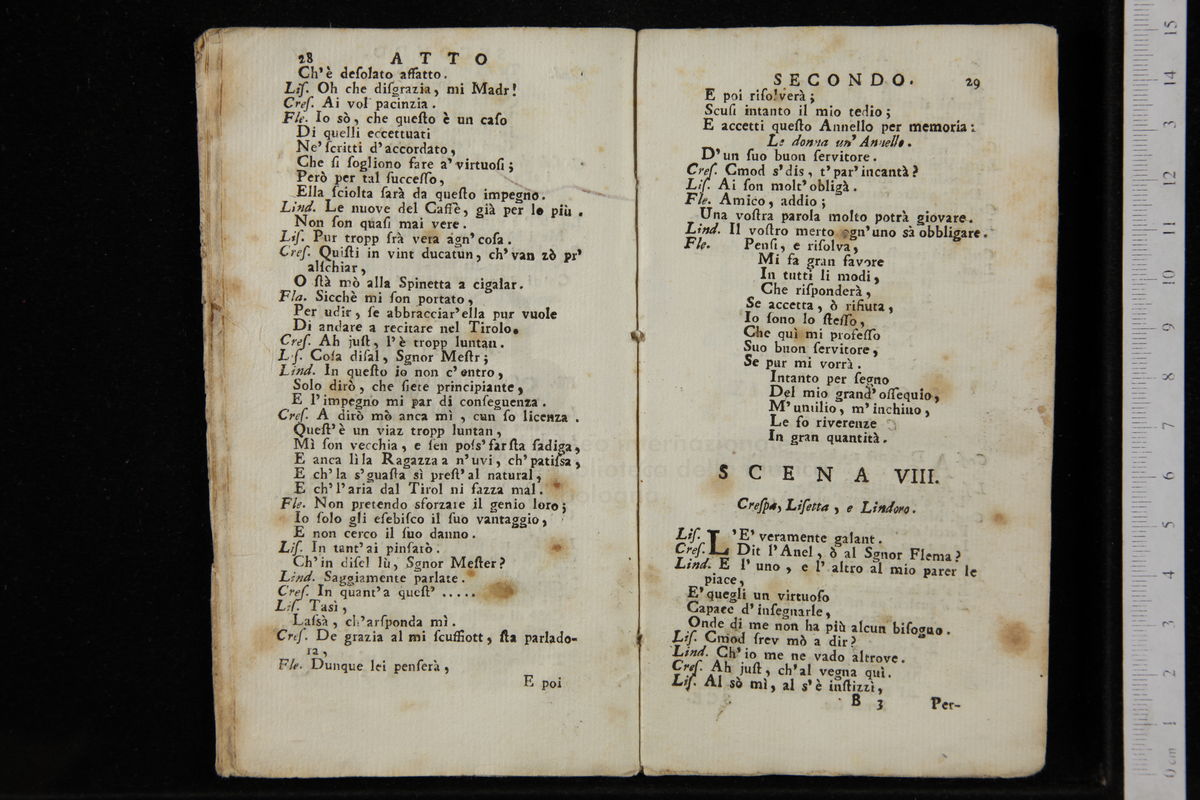 28 ATTO
Ch'è desolato affatto.
Lis. Oh che disgrazia, mi Madr!
Cres. Ai vol pacinzia.
Fle. Io sò, che questo è un caso
Di quelli eccettuati
Ne' scritti d'accordato,
Che si sogliono fare a' virtuosi;
Però per tal successo,
Ella sciolta sarà da questo impegno.
Lind. Le nuove del Caffè, già per lo più.
Non son quasi mai vere.
Lis. Pur tropp srà vera agn' cosa.
Cres. Quisti in vint ducatun, ch' van zò pr'
alschiar,
O stà mò alla Spinetta a cigalar.
Fla. Sicchè mi son portato,
Per udir, se abbracciar' ella pur vuole
Di andare a recitare nel Tirolo.
Cres. Ah just, l'è tropp luntan.
Lis. Cosa disal, Sgnor Mestr;
Lind. In questo io non c'entro,
Solo dirò, che siete principiante,
E l'impegno mi par di conseguenza.
Cres. A dirò mò anca mì, cun so licenza.
Quest' è un viaz tropp luntan,
Mì son vecchia, e sen pois' far sta fadiga,
E anca lì la Ragazza a n'uvi, ch' patissa,
E ch'la s'guasta si prest' al natural,
E ch'l'aria dal Tirol ni fazza mal.
Fle. Non pretendo sforzare il genio loro;
Io solo gli esebisco il suo vantaggio,
E non cerco il suo danno.
Lis. In tant'ai pinsarò.
Ch'in disel lù, Sgnor Mester?
Lind. Saggiamente parlate.
Cres. In quant'a quest' .....
Lis. Tasi,
Lassà, ch'arsponda mì.
Cres. De grazia al mi scuffiott, sta parlado-
ra,
Fle. Dunque lei penserà,
E poi
SECONDO. 29
E poi risolverà;
Scusi intanto il mio tedio;
E accetti questo Annello per memoria:
Le donna un' Annello.
D'un suo buon servitore.
Cres. Cmod s'dis, t'par'incantà?
Lis. Ai son molt'obligà.
Fle. Amico, addio;
Una vostra parola molto potrà giovare.
Lind. Il vostro merto ogn'uno sà obbligare.
Fle. Pensi, e risolva,
Mi fa gran favore
In tutti li modi,
Che risponderà,
Se accetta, ò rifiuta,
Io sono lo stesso,
Che quì mi professo
Suo buon servitore,
Se pur mi vorrà.
Intanto per segno
Del mio grand'ossequio,
M'umilio, m'inchino,
Le fo riverenze
In gran quantità.
SCENA VIII.
Crespa, Lisetta, e Lindoro.
Lis. L'E' veramente galant.
Cres. Dit l'Anel, ò al Sgnor Flema?
Lind. E l'uno, e l'altro al mio parer le
piace,
E' quegli un virtuoso
Capace d'insegnarle,
Onde di me non ha più alcun bisogno.
Lis. Cmod srev mò a dir?
Lind. Ch'io me ne vado altrove.
Cres. Ah just, ch'al vegna quì.
Lis. Al sò mì, al s'è instizzì,
B 3 Per-